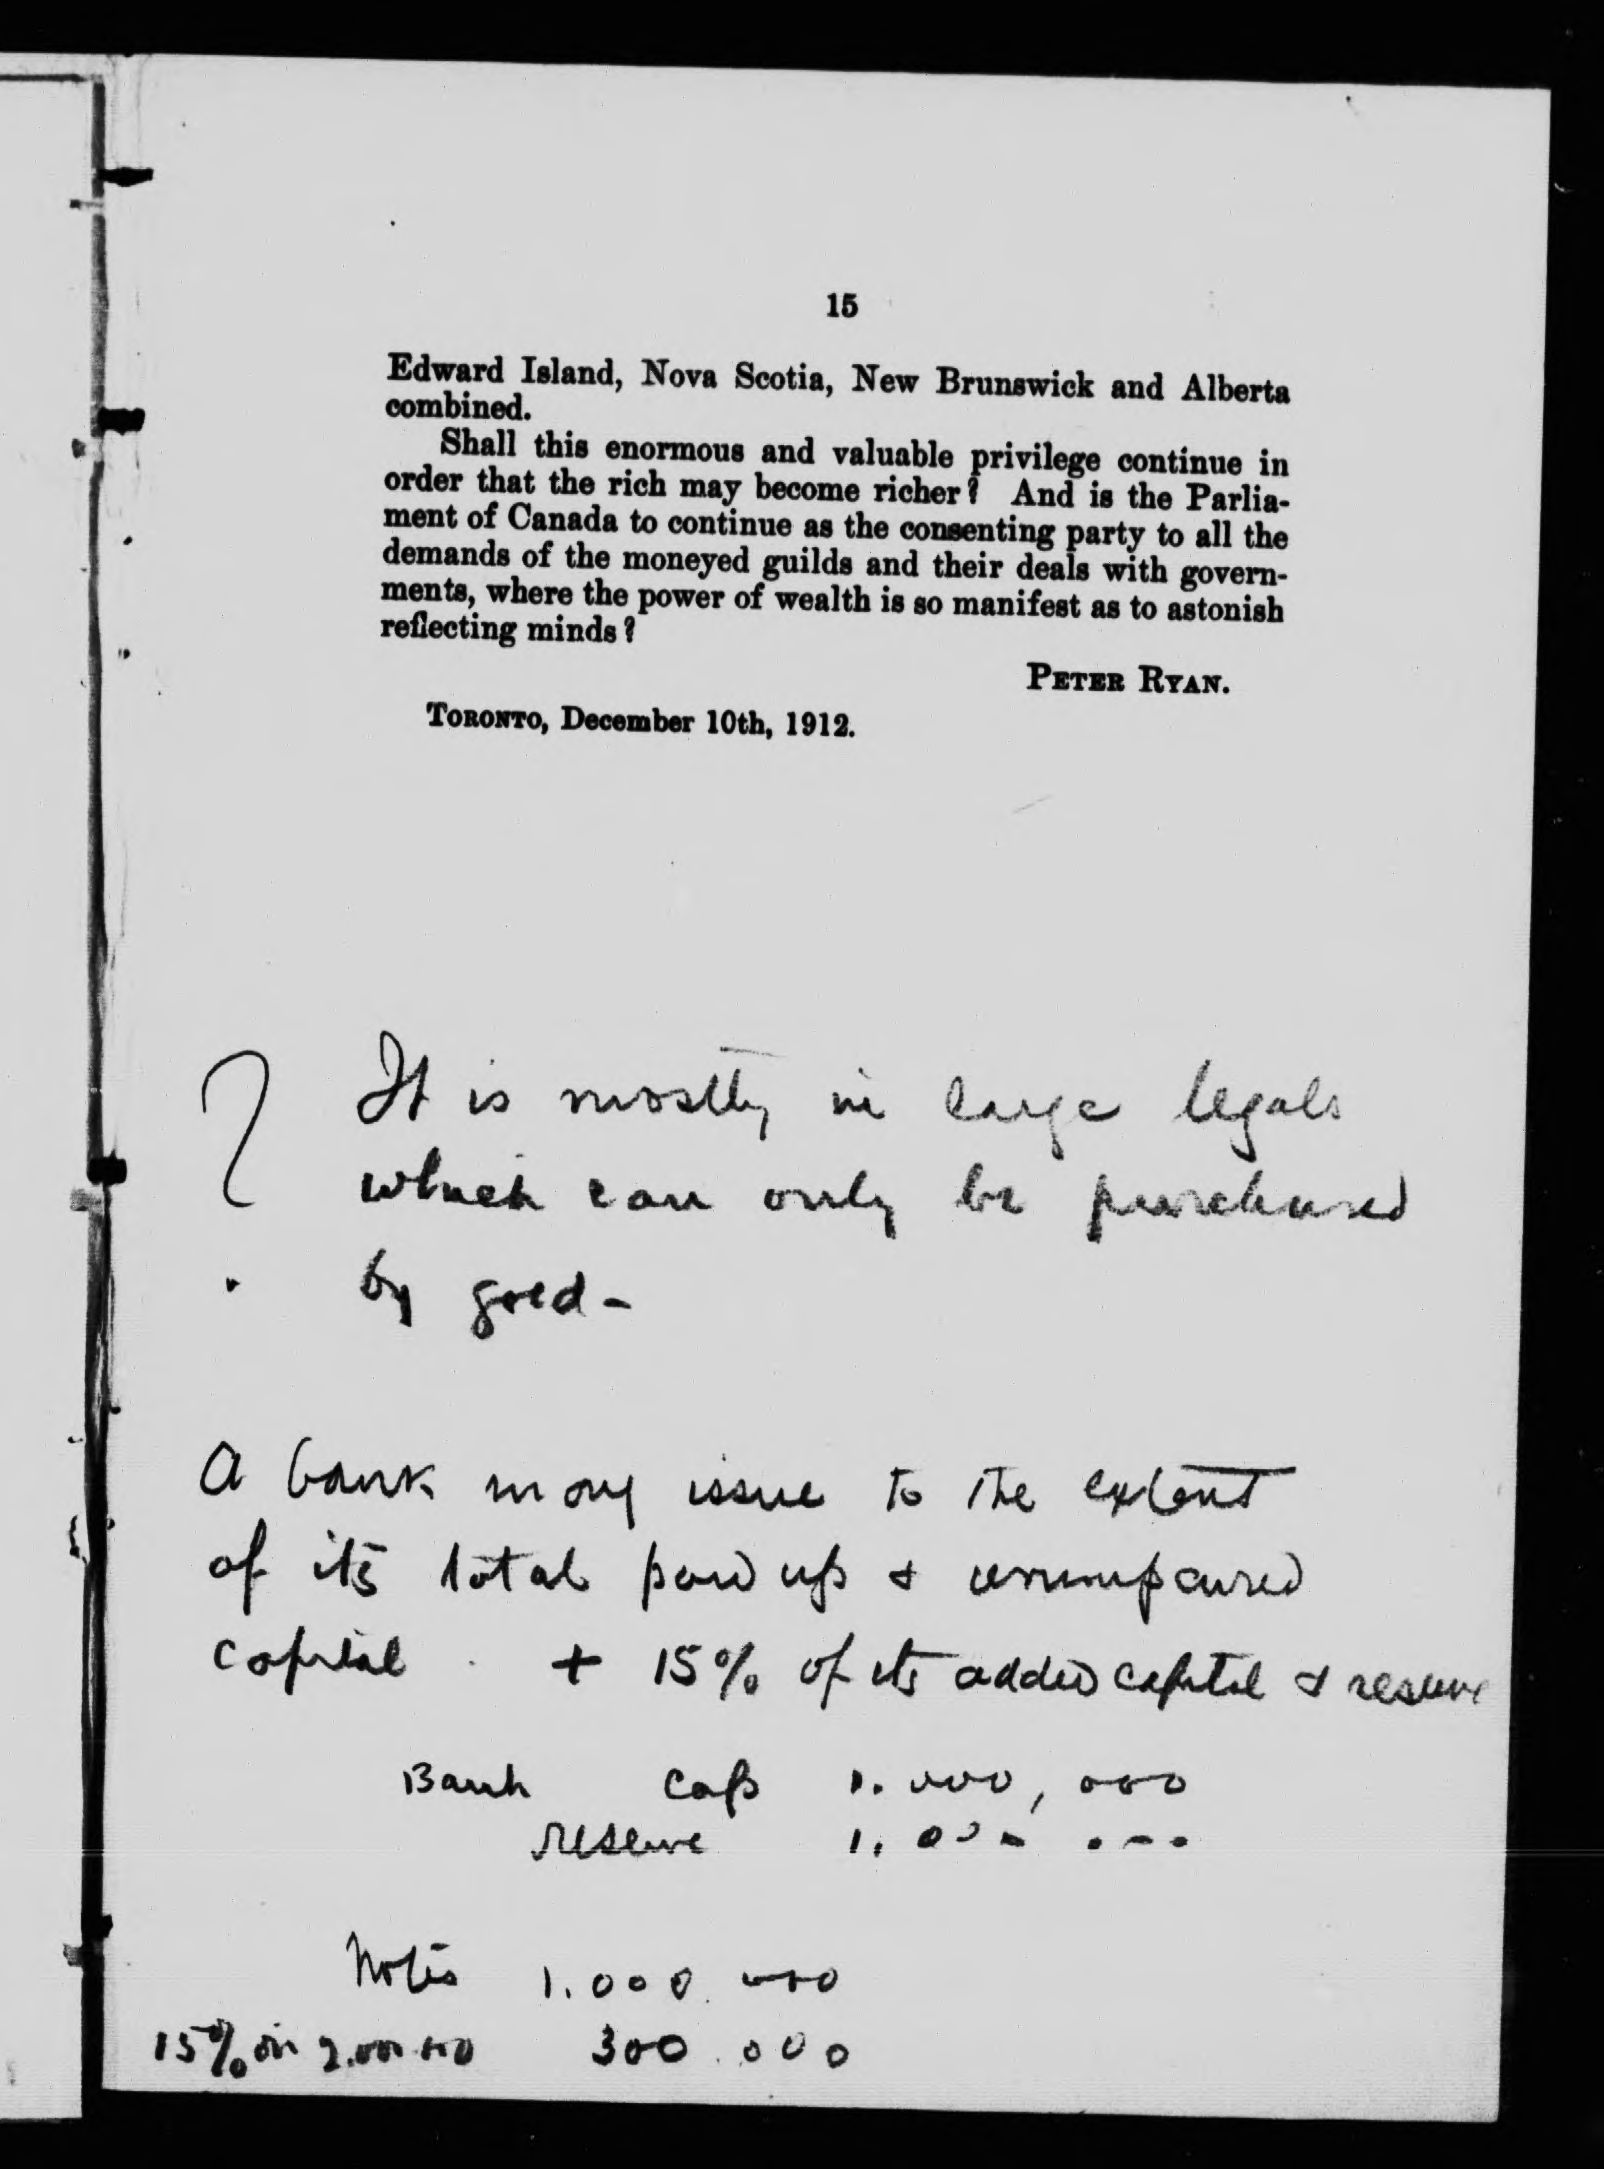 15
Edward Island, Nova Scotia, New Brunswick and Alberta
combined.
Shall this enormous and valuable privilege continue in
order that the rich may become richer? And is the Parlia-
ment of Canada to continue as the consenting party to all the
demands of the moneyed guilds and their deals with govern-
ments, where the power of wealth is so manifest as to astonish
reflecting minds?
PETER RYAN.
TORONTO, December 10th, 1912.
? It is mostly in large legals
which can only be purchased
by gold -
A bank may issue to the extent
of its total paid up & unimpaired
capital + 15% of its added capital & reserve
Bank cap 1.000,000
reserve 1.000 000
Notes 1.000.000
15% on 2.000.000 300.000